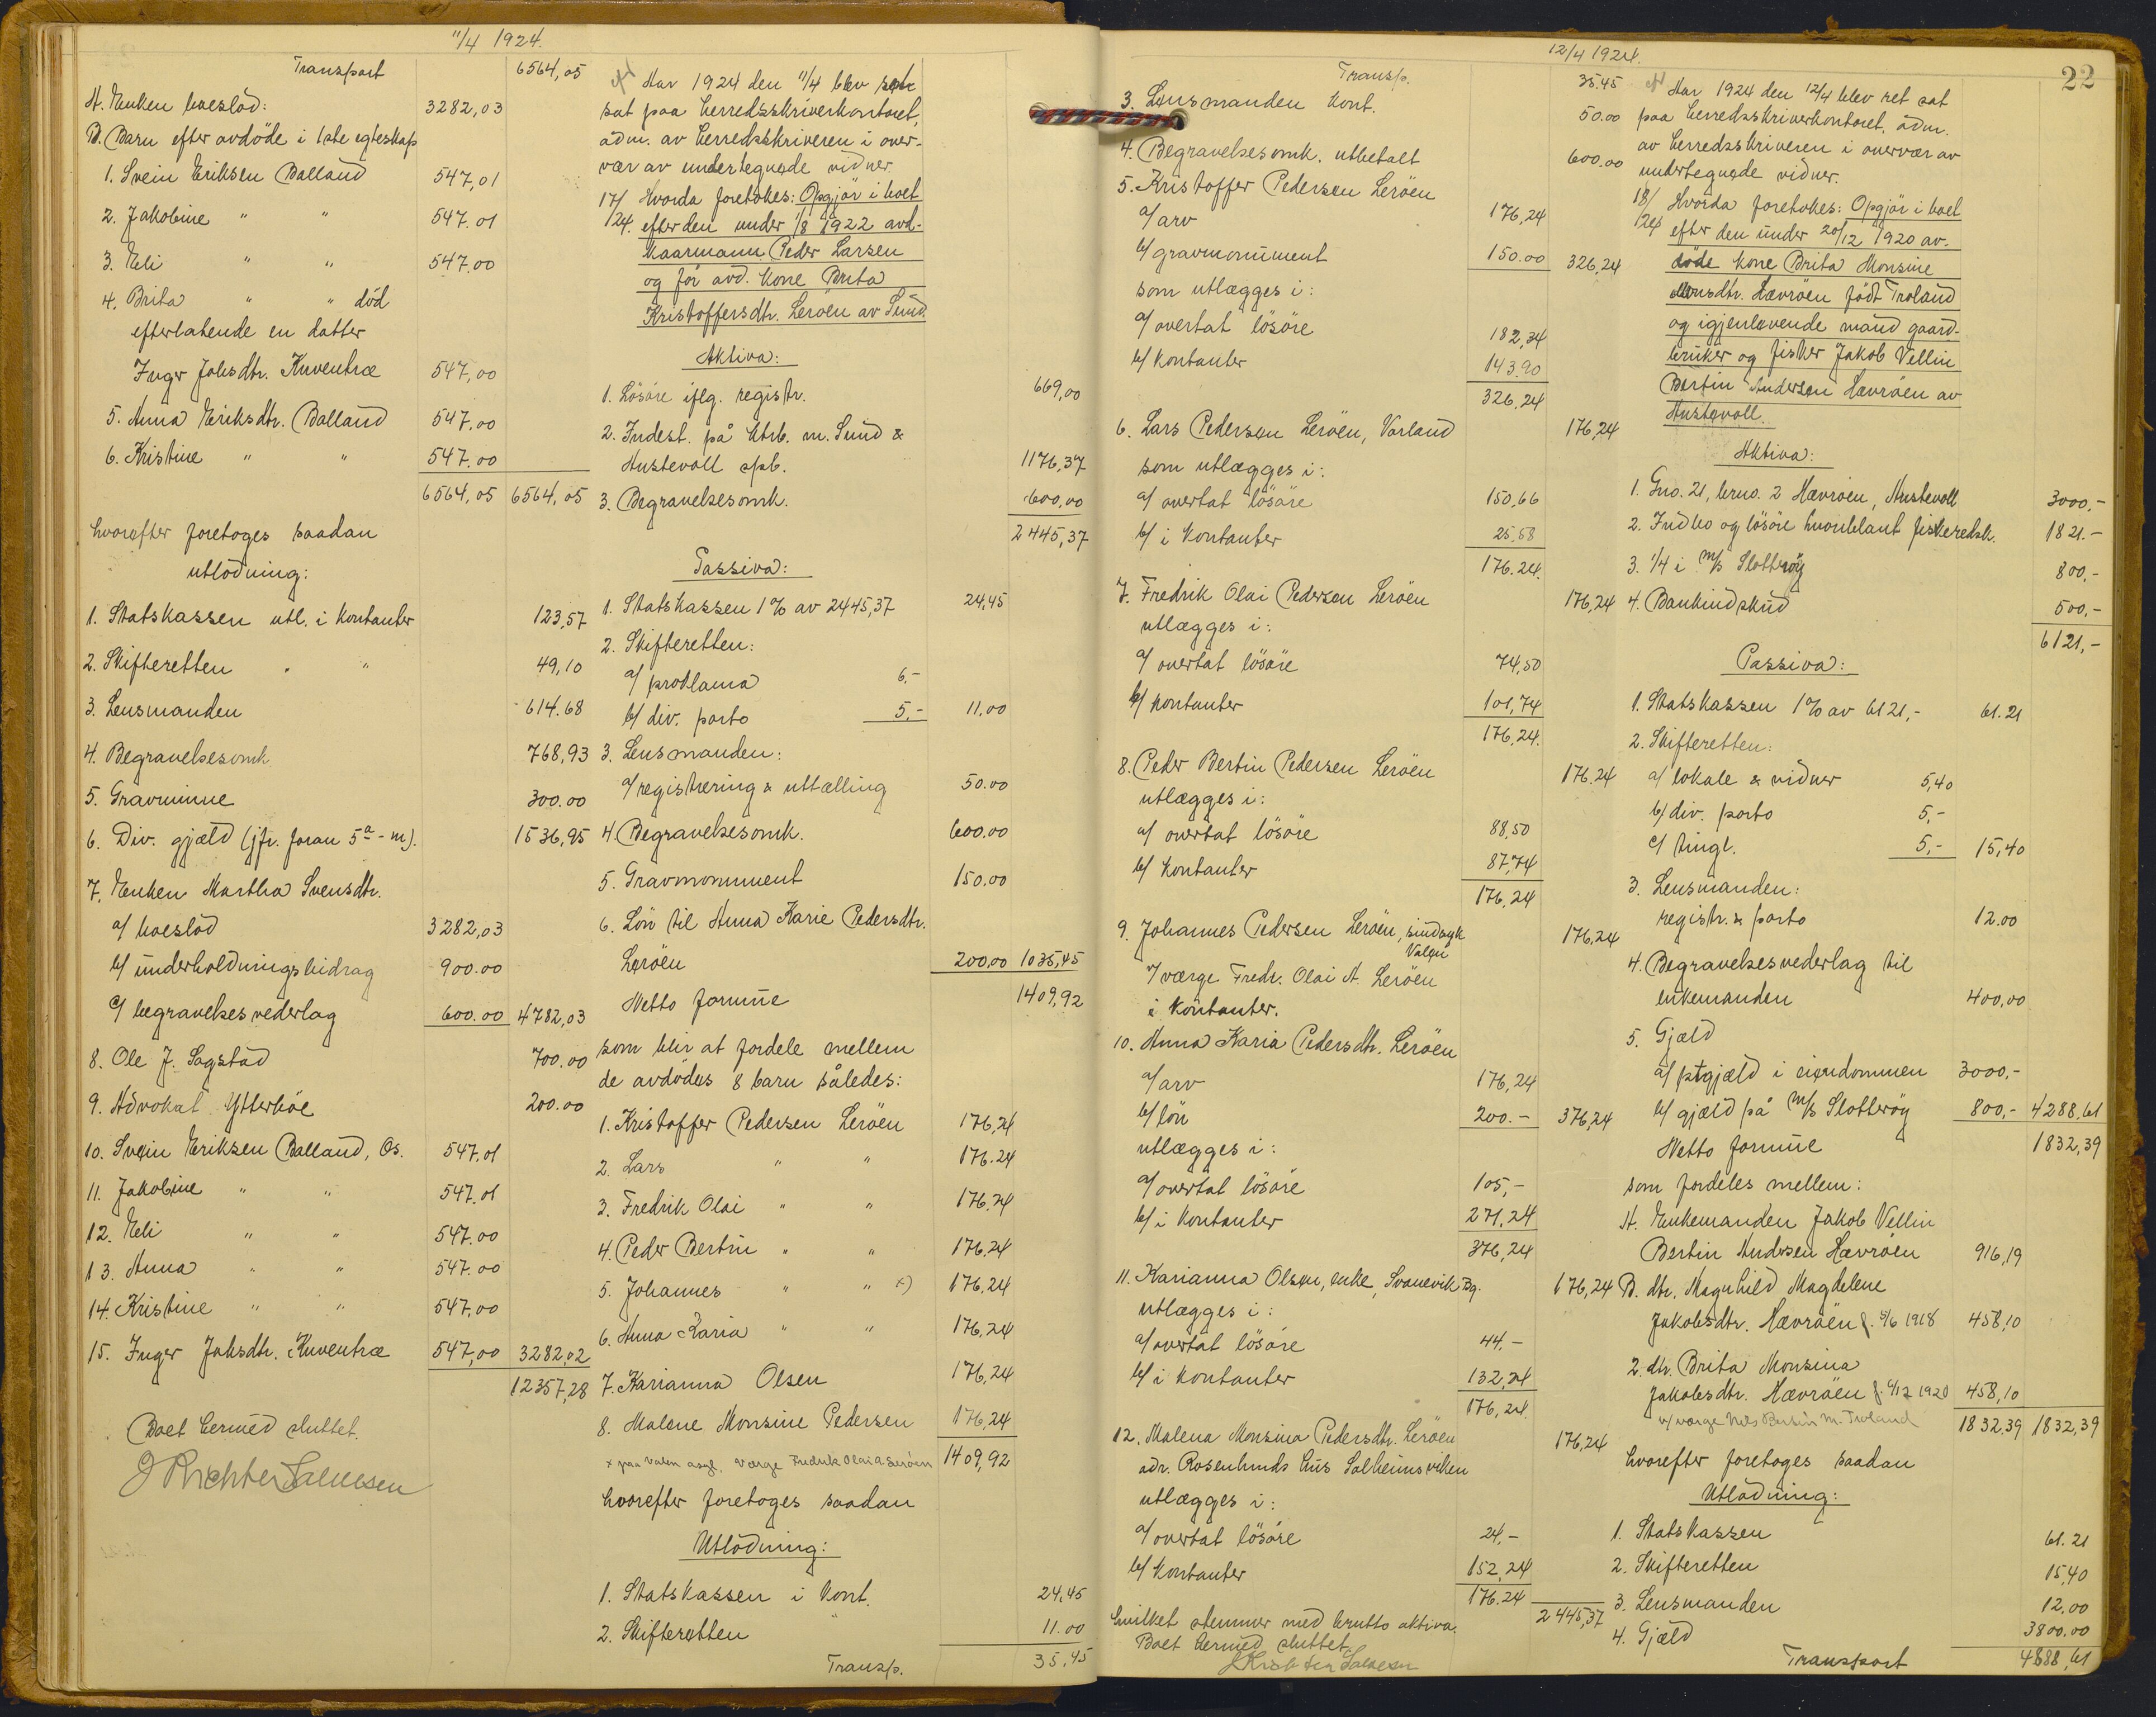 11/4 1924.
Transport 6564,05
A. Enken boeslod: 3282,03
B. Barn efter avdöde i 1ste egteskap
1. Svein Eriksen Balland 547,01
2. Jakobine " " 547.01
3. Eli " " 547.00
4. Brita " " död
efterlatende en datter
Inger Jahsdtr. Kuventræ 547,00
5. Anna Eriksdtr. Balland 547,00
6. Kristine " " 547.00
6564,05 6564,05
hvorefter foretoges saadan
utlodning:
1. Statskassen utl. i kontanter 123,57
2. Skifteretten " " 49,10
3. Lensmanden 614.68
4. Begravelsesomk 768,93
5. Gravminne 300.00
6. Div. gjæld (jfr. foran 5a - m). 1536,95
7. Enken Martha Svensdtr.
a/ boeslod 3282,03
b/ underholdningsbidrag 900.00
c/ begravelsesvederlag 600.00 4782,03
8. Ole J. Sagstad 700.00
9. Advokat Ytterböe 200.00
10. Svein Eriksen Balland, Os. 547.01
11. Jakobine " " 547.01
12. Eli " " 547.00
13. Anna " " 547.00
14. Kristine " " 547,00
15. Inger Jahsdtr. Kuventræ 547,00 3282,02
12357,28
Boet hermed sluttet.
J Richter Salvesen
Aar 1924 den 11/4 blev ret
sat paa herredsskriverkontoret,
adm. av herredsskriveren i over-
vær av undertegnede vidner.
17/24. Hvorda foretokes: Opgjör i boet
efter den under 1/8 1922 avd.
kaarmann Peder Larsen
og för avd. kone Brita
Kristoffersdtr. Leröen av Sund.
Aktiva:
1. Lösöre iflg. registr. 669,00
2. Indest. på ktrb. m. Sund &
Austevoll spb. 1176,37
3. Begravelsesomk. 600,00
2445,37
Passiva:
1. Statskassen 1% av 2445,37 24,45
2. Skifteretten:
a/ proklama 6,-
b/ div. porto 5,- 11,00
3. Lensmanden:
a/ registrering & uttælling 50.00
4. Begravelsesomk. 600.00
5. Gravmonument 150.00
6. Lön til Anna Karie Pedersdtr.
Leröen 200,00 1035,45
Netto formue 1409,92
som blir at fordele mellem
de avdödes 8 barn således:
1. Kristoffer Pedersen Leröen 176,24
2. Lars " " 176.24
3. Fredrik Olai " " 176,24
4. Peder Bertin " " 176,24
5. Johannes " " x) 176,24
6. Anna Karia " " 176,24
7. Karianna Olsen 176,24
8. Malene Monsine Pedersen 176,24
x paa Valen asyl. Værge Fredrik Olai A Leröen 1409,92
hvorefter foretoges saadan
Utlodning:
1. Statskassen i kont. 24,45
2. Skifteretten " 11.00
Transp. 35,45
12/4 1924.
22
Transp. 35.45
3. Lensmanden kont. 50.00
4. Begravelsesomk. utbetalt 600.00
5. Kristoffer Pedersen Leröen
a/ arv 176,24
b/ gravmonument 150.00 326,24
som utlægges i:
a/ overtat lösöre 182,34
b/ kontanter 143.90
326,24
6. Lars Pedersen Leröen, Vorland 176,24
som utlægges i:
a/ overtat lösöre 150,66
b/ i kontanter 25,58
176.24.
7. Fredrik Olai Pedersen Leröen 176,24
utlægges i:
a/ overtat lösöre 74,50
b/ kontanter 101,74
176,24.
8. Peder Bertin Pedersen Leröen 176.24
utlægges i:
a/ overtat lösöre 88,50
b/ kontanter 87,74
176,24
9. Johannes Pedersen Leröen, sindsyk 176,24
Valen
v/ værge Fredr. Olai A. Leröen
i kontanter.
10. Anna Karia Pedersdtr. Leröen
a/ arv 176,24
b/ lön 200.- 376,24
utlægges i:
a/ overtat lösöre 105,-
b/ i kontanter 271,24
376,24
11. Karianna Olsen, enke, Svanevik Bg. 176,24
utlægges i:
a/ overtat lösöre 44,-
b/ i kontanter 132,24
176,24.
12. Malena Monsina Pedersdtr. Leröen 176,24
adr. Rosenlunds hus Solheimsviken
utlægges i:
a/ overtat lösöre 24,-
b/ kontanter 152,24
176.24
2445,37
hvilket stemmer med brutto aktiva.
Boet hermed sluttet.
J Richter Salvesen
Aar 1924 den 12/4 blev ret sat
paa herredsskriverkontoret, adm.
av herredsskriveren i overvær av
undertegnede vidner.
18/24 Hvorda foretokes: Opgjör i boet
efter den under 20/12 1920 av-
döde kone Brita Monsine
Monsdtr. Hævröen födt Troland
og igjenlevende mand gaard-
bruker og fisker Jakob Vellin
Bertin Andersen Hævröen av
Austevoll.
Aktiva:
1. Gno. 21, brno. 2 Hævröen, Austevoll 3000,-
2. Indbo og lösöre hvoriblant fiskeredsk. 1821.-
3. 1/4 i m/s Slotteröy 800,-
4. Bankindskud 500,-
6121,-
Passiva:
1. Statskassen 1% av 6121,- 61.21
2. Skifteretten:
a/ lokale & vidner 5,40
b/ div. porto 5,-
c/ tingl. 5,- 15,40
3. Lensmanden:
registr. & porto 12.00
4. Begravelsesvederlag til
enkemanden 400,00
5. Gjæld
a/ ptgjæld i eiendommen 3000,-
b/ gjæld på m/s Slotteröy 800,- 4288,61
Netto formue 1832,39
som fordeles mellem:
A. Enkemanden Jakob Vellin
Bertin Andersen Hævröen 916,19
B. dtr. Magnhild Magdelene
Jakobsdtr. Hævröen f. 5/6 1918 458,10
2. dtr. Brita Monsina
Jakobsdtr. Hævröen f. 4/12 1920 458,10
v/ værge Nils Bertin M. Troland 1832,39 1832,39
hvorefter foretoges saadan
Utlodning:
1. Statskassen 61.21
2. Skifteretten 15,40
3. Lensmanden 12,00
4. Gjæld 3800.00
Transport 4888,61